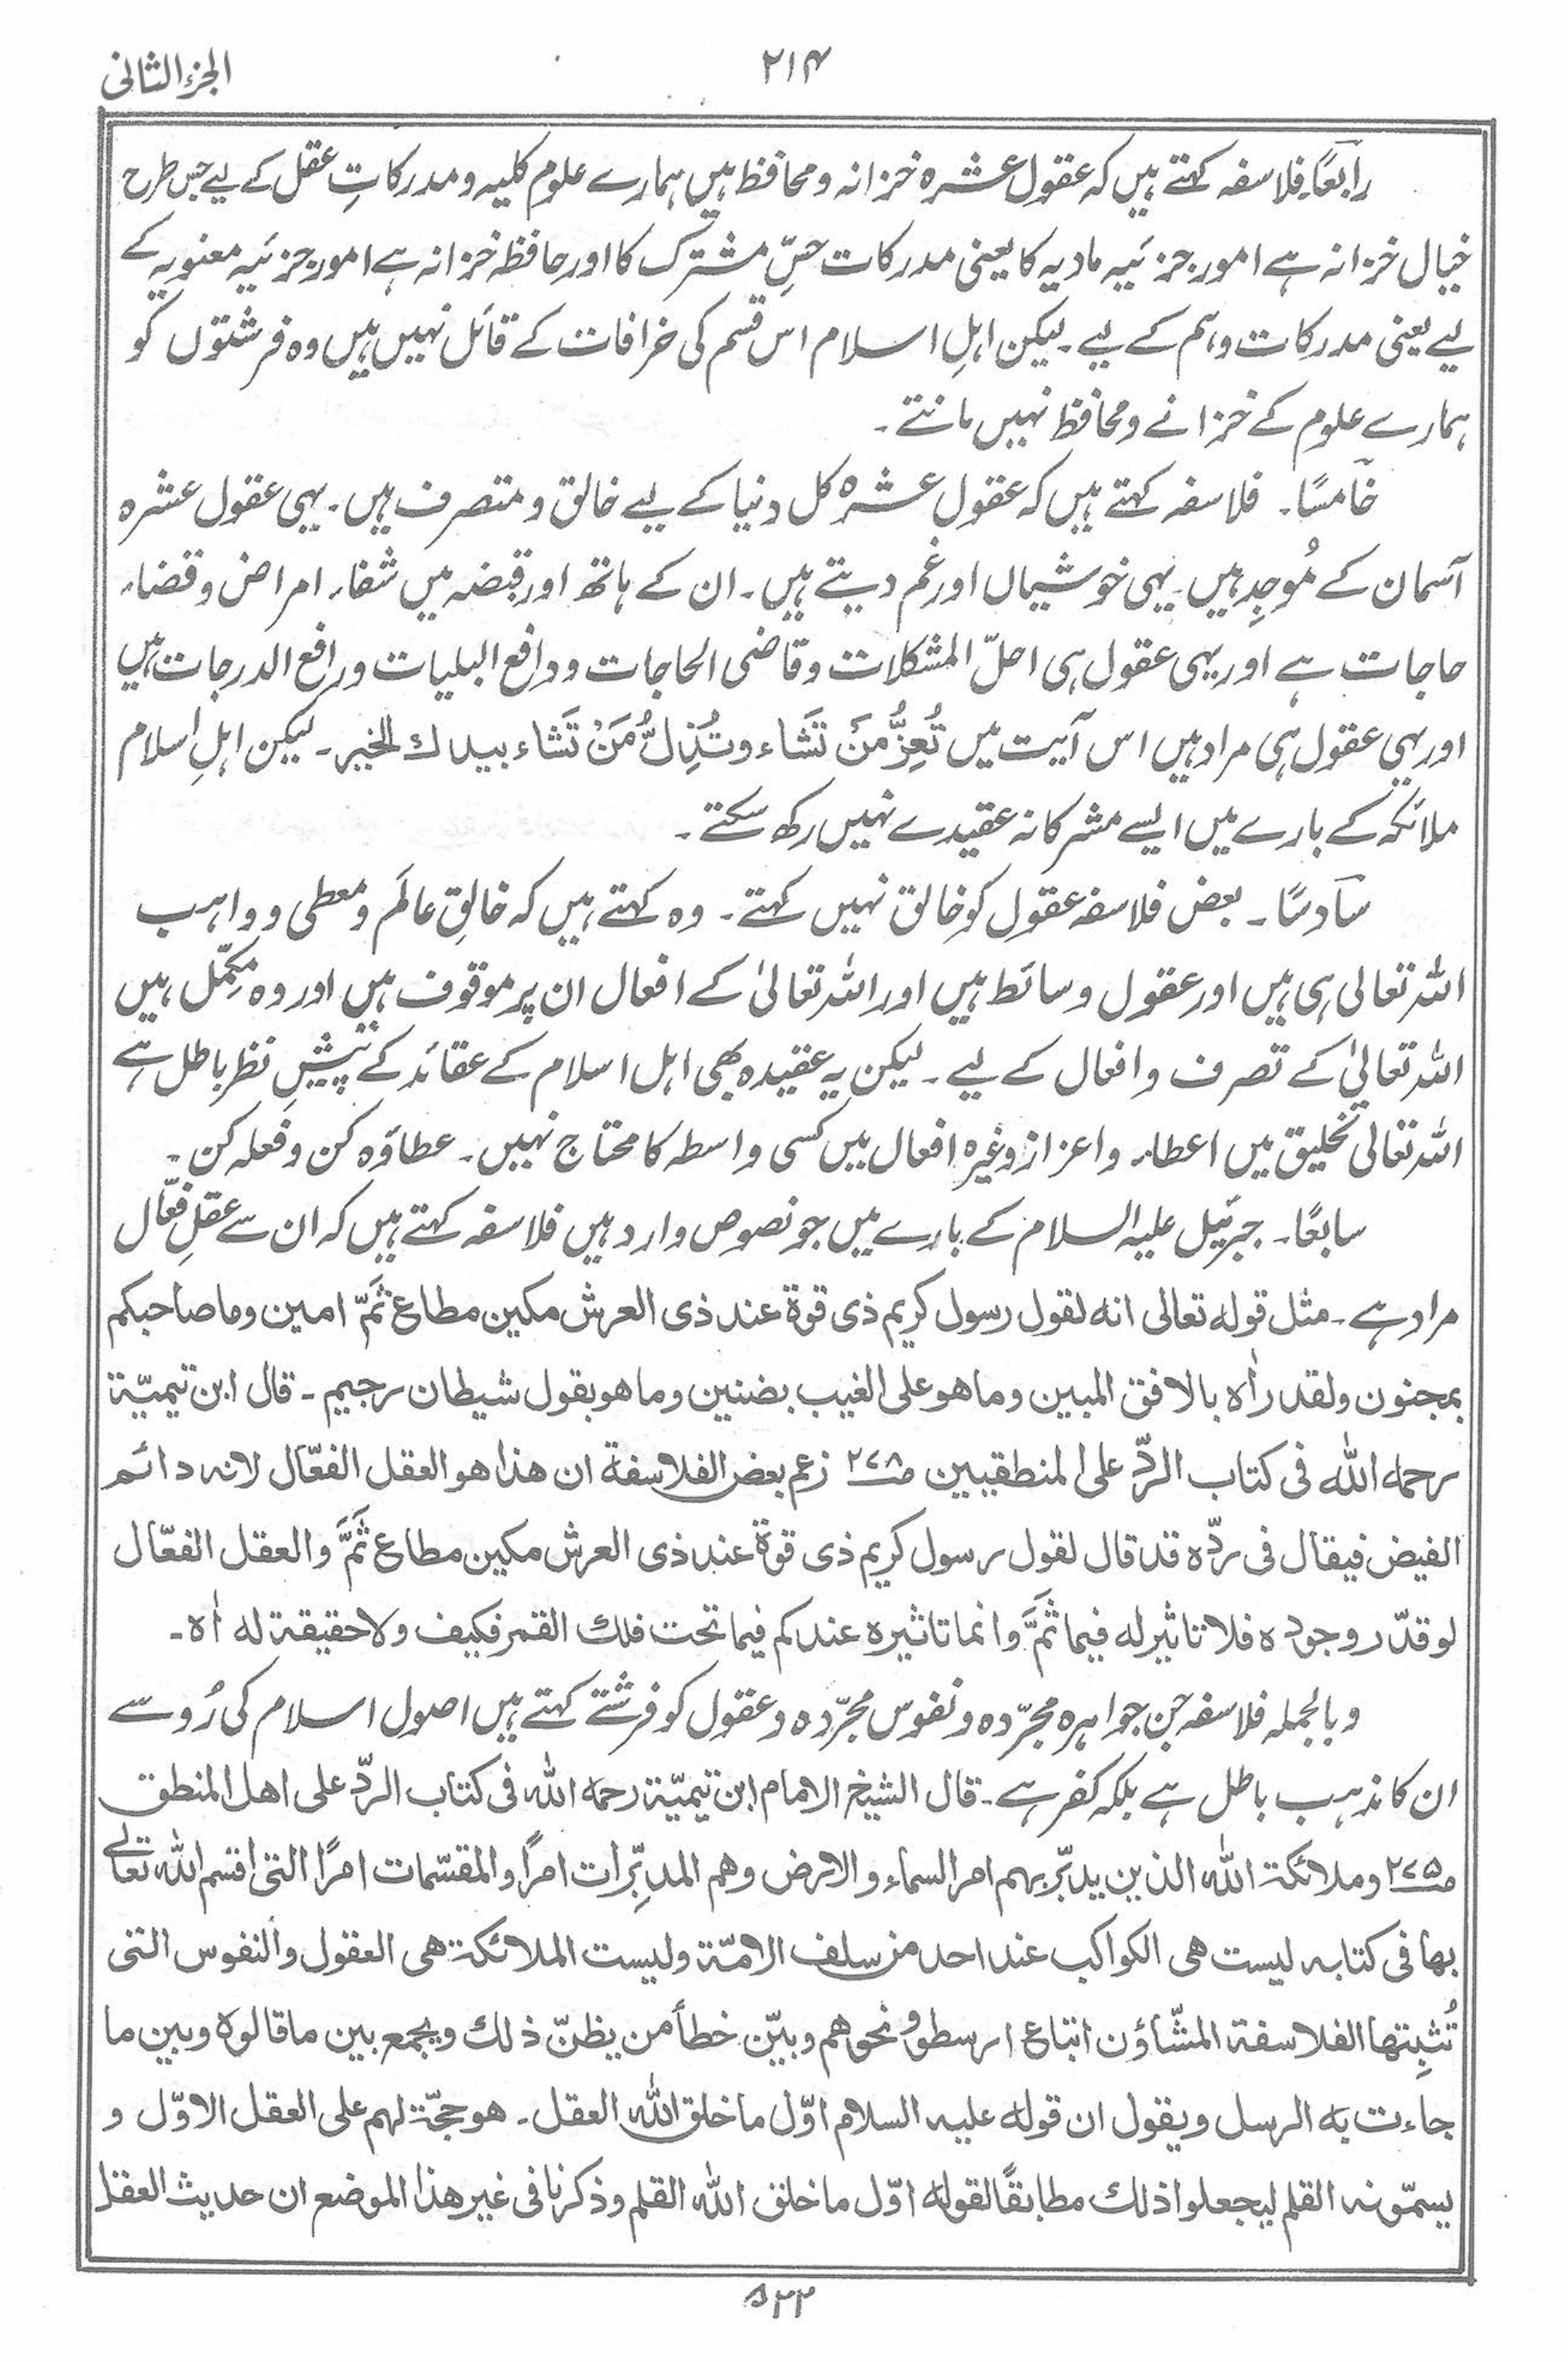 الجزء الثانی
۲۱۴
رابعًا۔ فلاسفہ کہتے ہیں کہ عقول عشرہ خزانہ و محافظ ہیں ہمارے علوم کلیہ و مدرکاتِ عقل کے لیے جس طرح
خیال خزانہ ہے امور جزئیہ مادیہ کا یعنی مدرکات حسِّ مشترک کا اور حافظہ خزانہ ہے امور جزئیہ معنویہ کے
لیے یعنی مدرکات وہم کے لیے۔ لیکن اہلِ اسلام اس قسم کی خرافات کے قائل نہیں ہیں وہ فرشتوں کو
ہمارے علوم کے خزانے و محافظ نہیں مانتے۔
خامسًا۔ فلاسفہ کہتے ہیں کہ عقول عشرہ کل دنیا کے لیے خالق و متصرف ہیں۔ یہی عقول عشرہ
آسمان کے مُوجِد ہیں۔ یہی خوشیاں اور غم دیتے ہیں۔ ان کے ہاتھ اور قبضہ میں شفاء امراض و قضاء
حاجات ہے اور یہی عقول ہی احلّ المشکلات و قاضی الحاجات و دافع البلیات و رافع الدرجات ہیں
اور یہی عقول ہی مراد ہیں اس آیت میں تُعِزُّ مَنۡ تَشَاء وتُذِلُّ مَنۡ تَشَاء بیدك الخیر۔ لیکن اہلِ اسلام
ملائکہ کے بارے میں ایسے مشرکانہ عقیدے نہیں رکھ سکتے۔
سادسًا۔ بعض فلاسفہ عقول کو خالق نہیں کہتے۔ وہ کہتے ہیں کہ خالقِ عالَم و معطی و واہب
اللہ تعالی ہی ہیں اور عقول وسائط ہیں اور اللہ تعالیٰ کے افعال ان پر موقوف ہیں اور وہ مکمِّل ہیں
اللہ تعالیٰ کے تصرف و افعال کے لیے۔ لیکن یہ عقیدہ بھی اہل اسلام کے عقائد کے پیشِ نظر باطل ہے
اللہ تعالی تخلیق میں اعطاء و اعزاز وغیرہ افعال میں کسی واسطہ کا محتاج نہیں۔ عطاؤہ کن وفعلہ کن۔
سابعًا۔ جبرئیل علیہ السلام کے بارے میں جو نصوص وارد ہیں فلاسفہ کہتے ہیں کہ ان سے عقلِ فعّال
مراد ہے۔ مثل قولہ تعالی انہ لقول رسول کریم ذی قوة عند ذی العرش مکین مطاع ثَمّ امین وما صاحبکم
بمجنون ولقد راٰہ بالافق المبین وما ھو علی الغیب بضنین وما ھو بقول شیطان رجیم۔ قال ابن تیمیّة
رحمہ اللہ فی کتاب الردّ علی المنطقیین ص۲۷۸ زعم بعض الفلاسفة ان ھذا ھو العقل الفعّال لانہ دائم
الفیض فیقال فی ردّہ قد قال لقول رسول کریم ذی قوّة عند ذی العرش مکین مطاع ثَمَّ والعقل الفعّال
لو قدّر وجودہ فلا تاثیر لہ فیما ثَمَّ وانما تاثیرہ عندکم فیما تحت فلك القمر فکیف ولا حقیقة لہ اٰہ۔
و بالجملہ فلاسفہ جن جواہرہ مجرّدہ و نفوس مجرّدہ و عقول کو فرشتے کہتے ہیں اصول اسلام کی رُو سے
ان کا مذہب باطل ہے بلکہ کفر ہے۔ قال الشیخ الامام ابن تیمیّة رحمہ اللہ فی کتاب الردّ علی اھل المنطق
ص۲۷۵ وملائکة اللہ الذین یدبّر بھم امر السماء والارض وھم المدبِّرات امرًا والمقسّمات امرًا التی اقسم اللہ تعالےٰ
بھا فی کتابہ لیست ھی الکواکب عند احد من سلف الامّة ولیست الملائکة ھی العقول والنفوس التی
تُثبِتھا الفلاسفة المشّاؤن اتباع ارسطو ونحوھم وبیّن خطأ من یظنّ ذلك ویجمع بین ما قالوہ وبین ما
جاءت بہ الرسل ویقول ان قولہ علیہ السلام اوّل ما خلق اللہ العقل۔ ھو حجّة لھم علی العقل الاوّل و
یسمّونہ القلم لیجعلوا ذلك مطابقًا لقولہ اوّل ما خلق اللہ القلم وذکرنا فی غیر ھذا الموضع ان حدیث العقل
۵۲۲